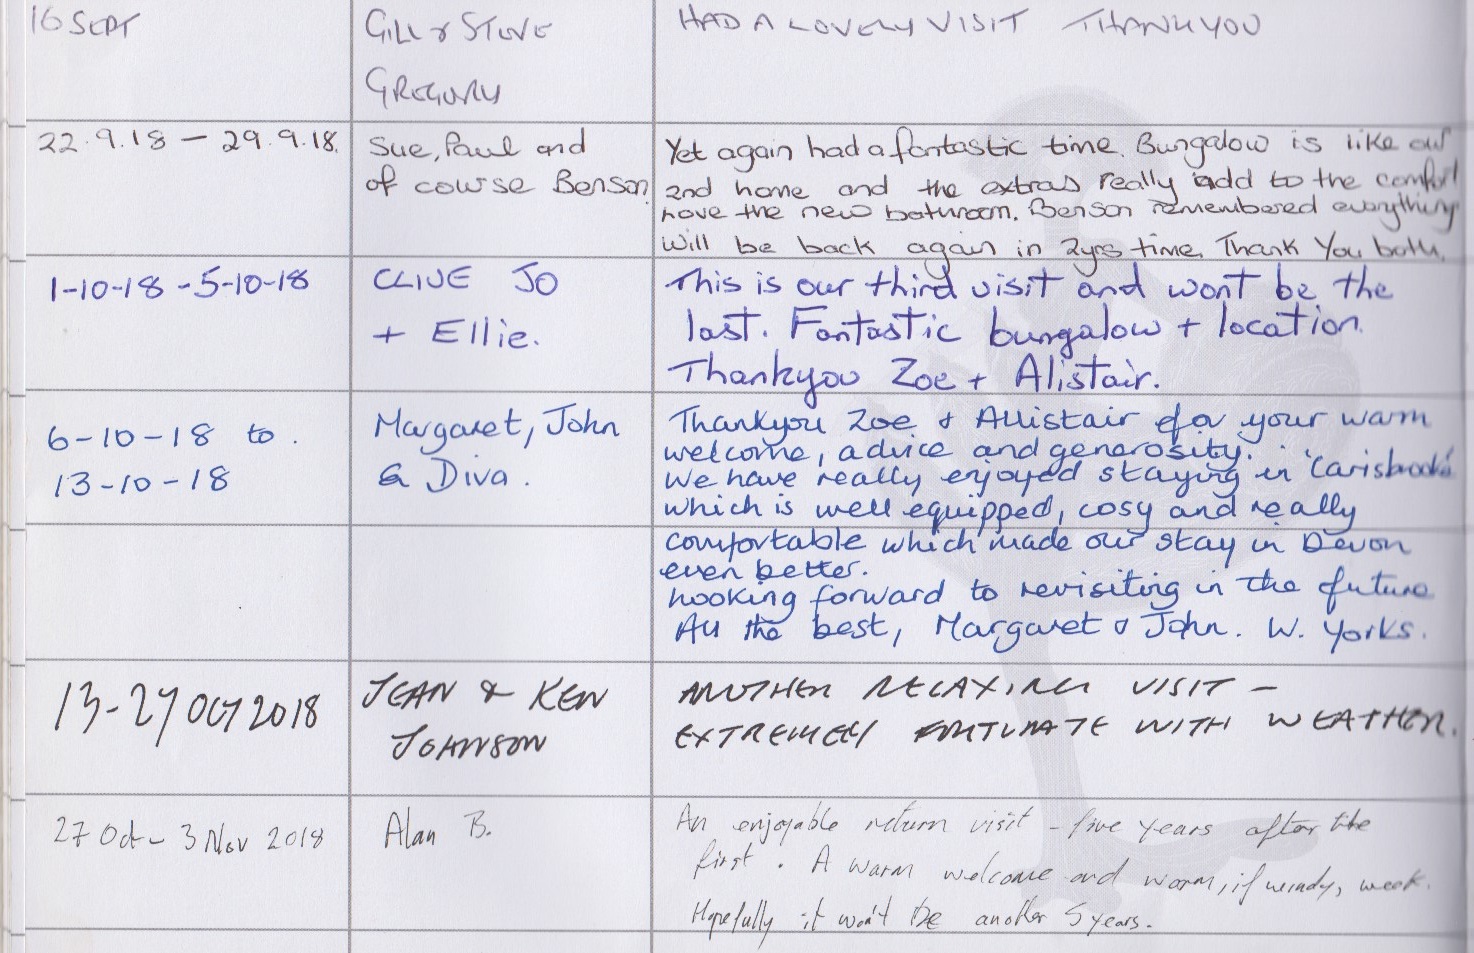 16 SEPT
GILL & STEVE
GREGORY
HAD A LOVELY VISIT THANKYOU
22.9.18 – 29.9.18.
Sue, Paul and
of course Benson
Yet again had a fantastic time. Bungalow is like our
2nd home and the extras really add to the comfort
Love the new bathroom. Benson remembered everything
Will be back again in 2yrs time. Thank You both.
1-10-18 - 5-10-18
CLIVE JO
+ Ellie.
This is our third visit and wont be the
last. Fantastic bungalow + location.
Thankyou Zoe + Alistair.
6-10-18 to.
13-10-18
Margaret, John
& Diva.
Thankyou Zoe & Allistair for your warm
welcome, advice and generosity.
We have really enjoyed staying in 'Carisbrooke'
which is well equipped, cosy and really
comfortable which made our stay in Devon
even better.
Looking forward to revisiting in the future
All the best, Margaret & John. W. Yorks.
13-27 OCT 2018
JEAN & KEN
JOHNSON
ANOTHER RELAXING VISIT –
EXTREMELY FORTUNATE WITH WEATHER.
27 Oct – 3 Nov 2018
Alan B.
An enjoyable return visit – five years after the
first. A warm welcome and warm, if windy, week.
Hopefully it won't be another 5 years.